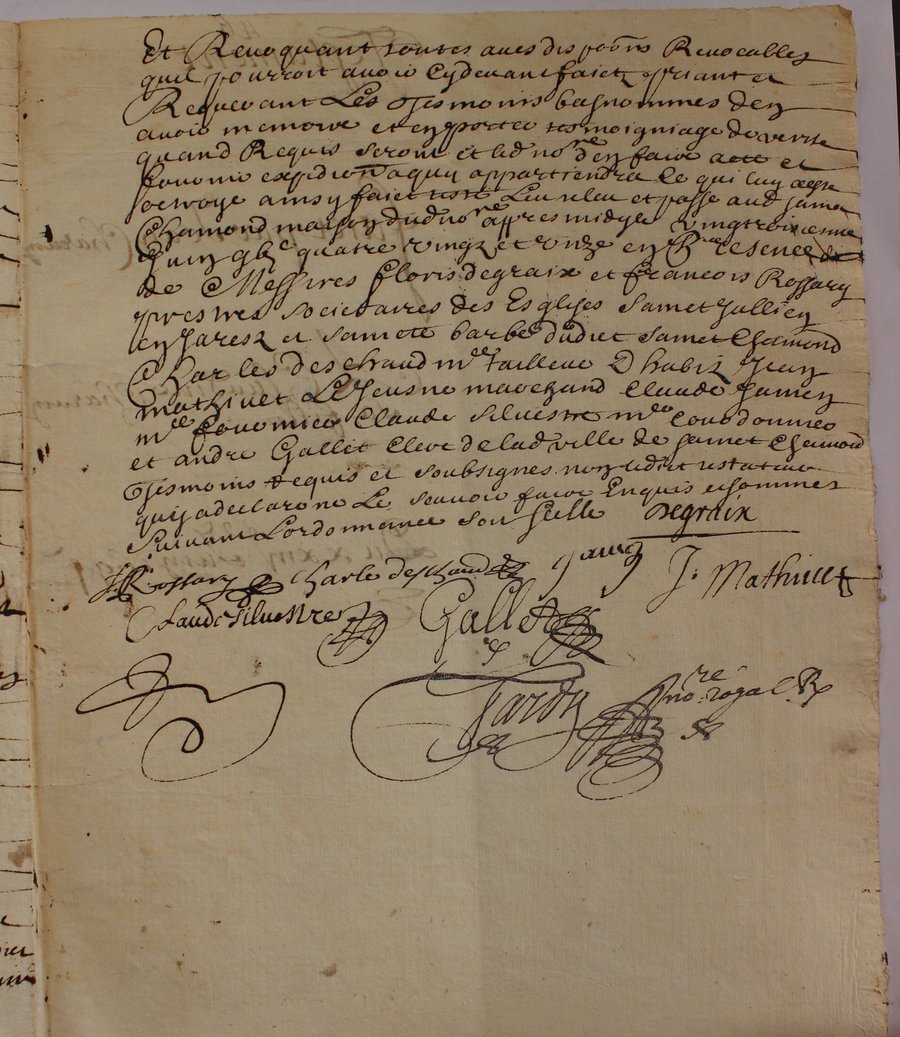 Et Revoquant toutes aues dispoons Revocables
quil pourroit avoir Cydevant faict priant et
Requerant Les Tesmoins basnommes den
avoir memoire et en porter tesmoigniage de verite
quand Requis seront et led nore den faire acte et
fournir expedion a quy appartiendra Ce qui luy a este
octroye ainsy faict leu releu et passe aud Sainct
Chamond maison dudnore appres midy le vingtroixiesme
Juin gbc quatre vingt et unze en Presence
de Messires Floris degraix et francois Rossary
prestres societaires des Esglises Sainct Jullien
en Jarest et saincte barbe dudict Sainct Chamond
Charles deschaud me tailleur Dhabit Jean
mathivet Le Jeusne marchand Claude Jamen
me Claude Silvestre me Courdonnier
et andre Gallet Clerc de lad ville de sainct Chamond
Tesmoins Requis et soubsignes non ledict testateur
quy a declare ne Le scavoir faire Enquis et sommes
Suivant Lordonnance son seelle Degraix
Rossary Charle deschaud Jamen J. Mathivet
Claude Silvestre Gallet
Tardy nore royal R